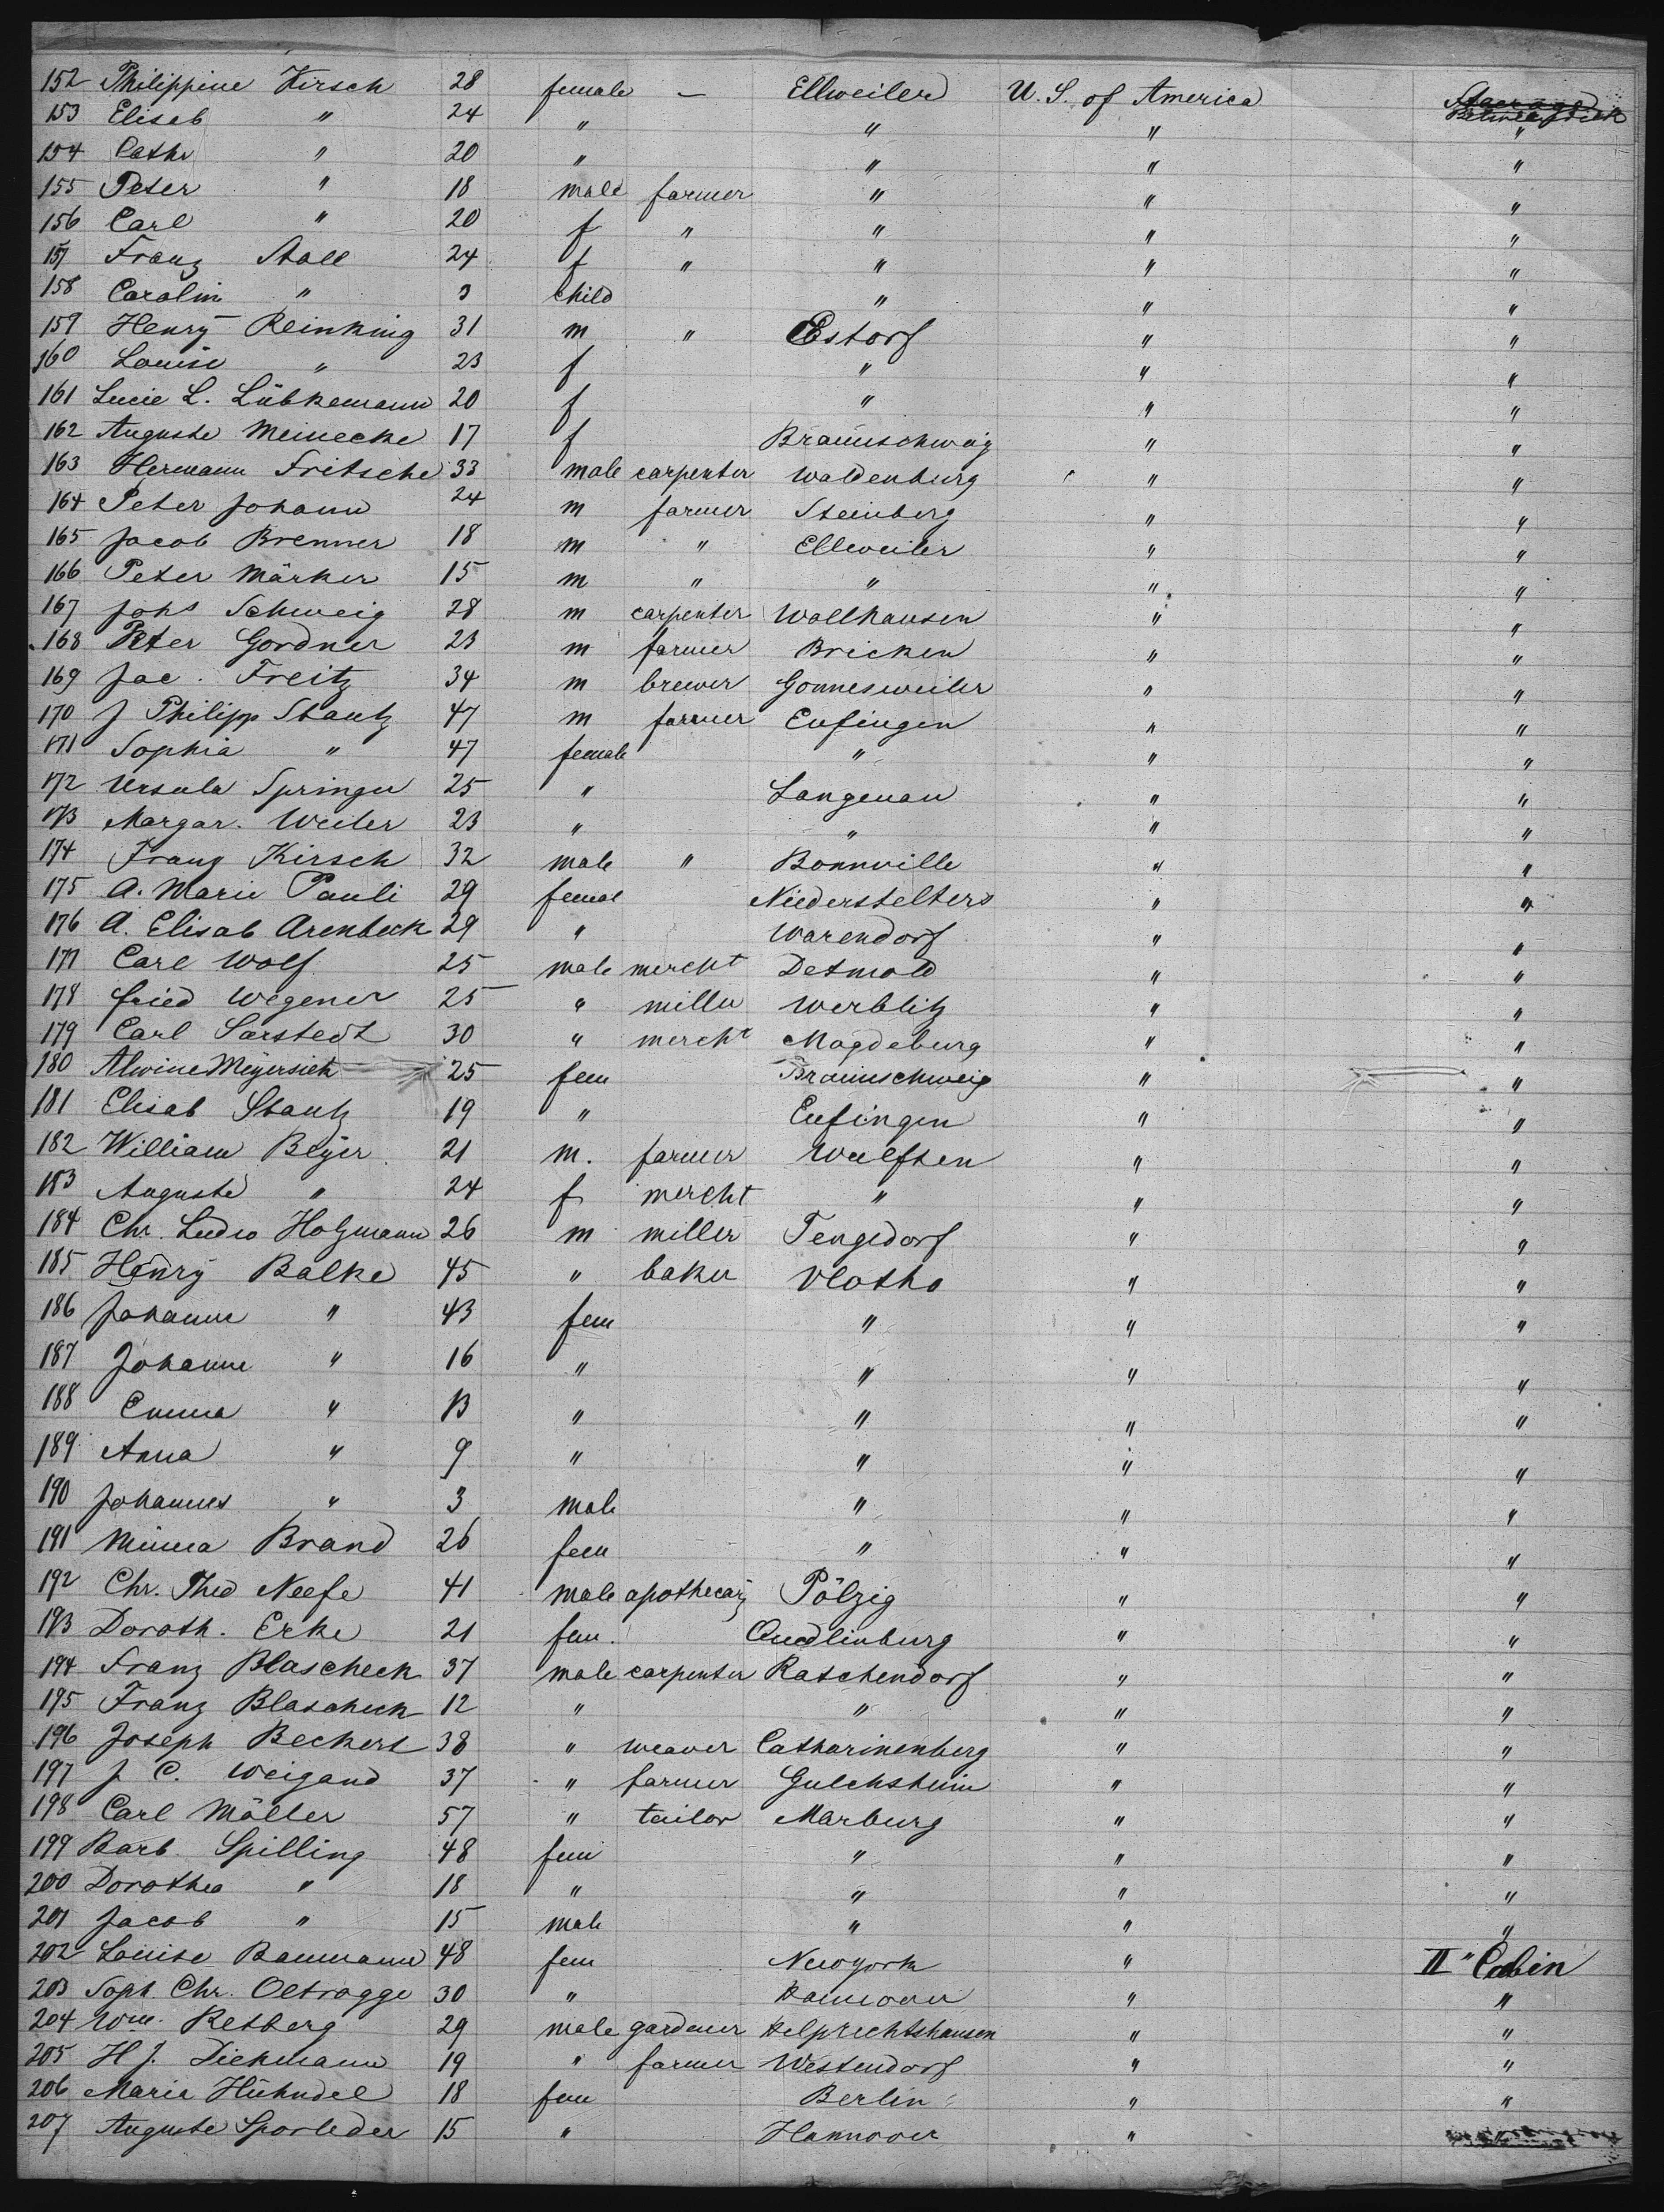 152 Philippine Kirsch 28 female — Ellweiler U. S. of America
153 Elisab " 24 " " " "
154 Cathr " 20 " " " "
155 Peter " 18 male farmer " " "
156 Carl " 20 f " " " "
157 Franz Stoll 24 f " " " "
158 Carolin " 3 child " " "
159 Henry Reinking 31 m " Estorf " "
160 Louise " 23 f " " "
161 Lucie L. Lübkemann 20 f " " "
162 Auguste Meinecke 17 f Braunschweig " "
163 Hermann Fritsche 33 male carpenter Waldenburg " "
164 Peter Johann 24 m farmer Steinberg " "
165 Jacob Brenner 18 m " Ellweiler " "
166 Peter Märker 15 m " " " "
167 Johs Schweig 28 m carpenter Wallhausen " "
168 Peter Gordner 23 m farmer Bricken " "
169 Jac. Freitz 34 m brewer Gonnesweiler " "
170 J Philipp Stautz 47 m farmer Eufingen " "
171 Sophia " 47 female " " "
172 Ursula Springer 25 " Langenau " "
173 Margar. Weiler 23 " " " "
174 Franz Kirsch 32 male " Bonnville " "
175 A. Marie Pauli 29 femal Niederstelters " "
176 A. Elisab Arenbeck 29 " Warendorf " "
177 Carl Wolf 25 male mercht Detmold " "
178 fried Wegener 25 " miller Werblitz " "
179 Carl Sarstedt 30 " mercht Magdeburg " "
180 Alwine Meyersiek 25 fem Braunschweig " "
181 Elisab Stautz 19 " Eufingen " "
182 William Beyer 21 m. farmer Wulften " "
183 Auguste " 24 f mercht " " "
184 Chr. Ludw Holzmann 26 m miller Tengedorf " "
185 Henry Balke 45 " baker Vlotho " "
186 Johanne " 43 fem " " "
187 Johanne " 16 " " " "
188 Emma " 13 " " " "
189 Anna " 9 " " " "
190 Johannes " 3 male " " "
191 Minna Brand 26 fem " " "
192 Chr. Theo Neefe 41 male apothecary Pölzig " "
193 Doroth. Erke 21 fem. Quedlinburg " "
194 Franz Blascheck 37 male carpenter Ratschendorf " "
195 Franz Blascheck 12 " " " "
196 Joseph Beckert 38 " weaver Catharinenberg " "
197 J C. Weigand 37 " farmer Gulchsheim " "
198 Carl Möller 57 " tailor Marburg " "
199 Barb. Spilling 48 fem " " "
200 Dorothea " 18 " " " "
201 Jacob " 15 male " " "
202 Louise Baumann 48 fem Newyork " II " Cabin
203 Soph. Chr. Oltrogge 30 " Hannover " "
204 Wm. Retberg 29 male gardener Helprechtshausen " "
205 H J. Diekmann 19 " farmer Westendorf " "
206 Maria Hühndel 18 fem Berlin " "
207 Auguste Sporleder 15 " Hannover "